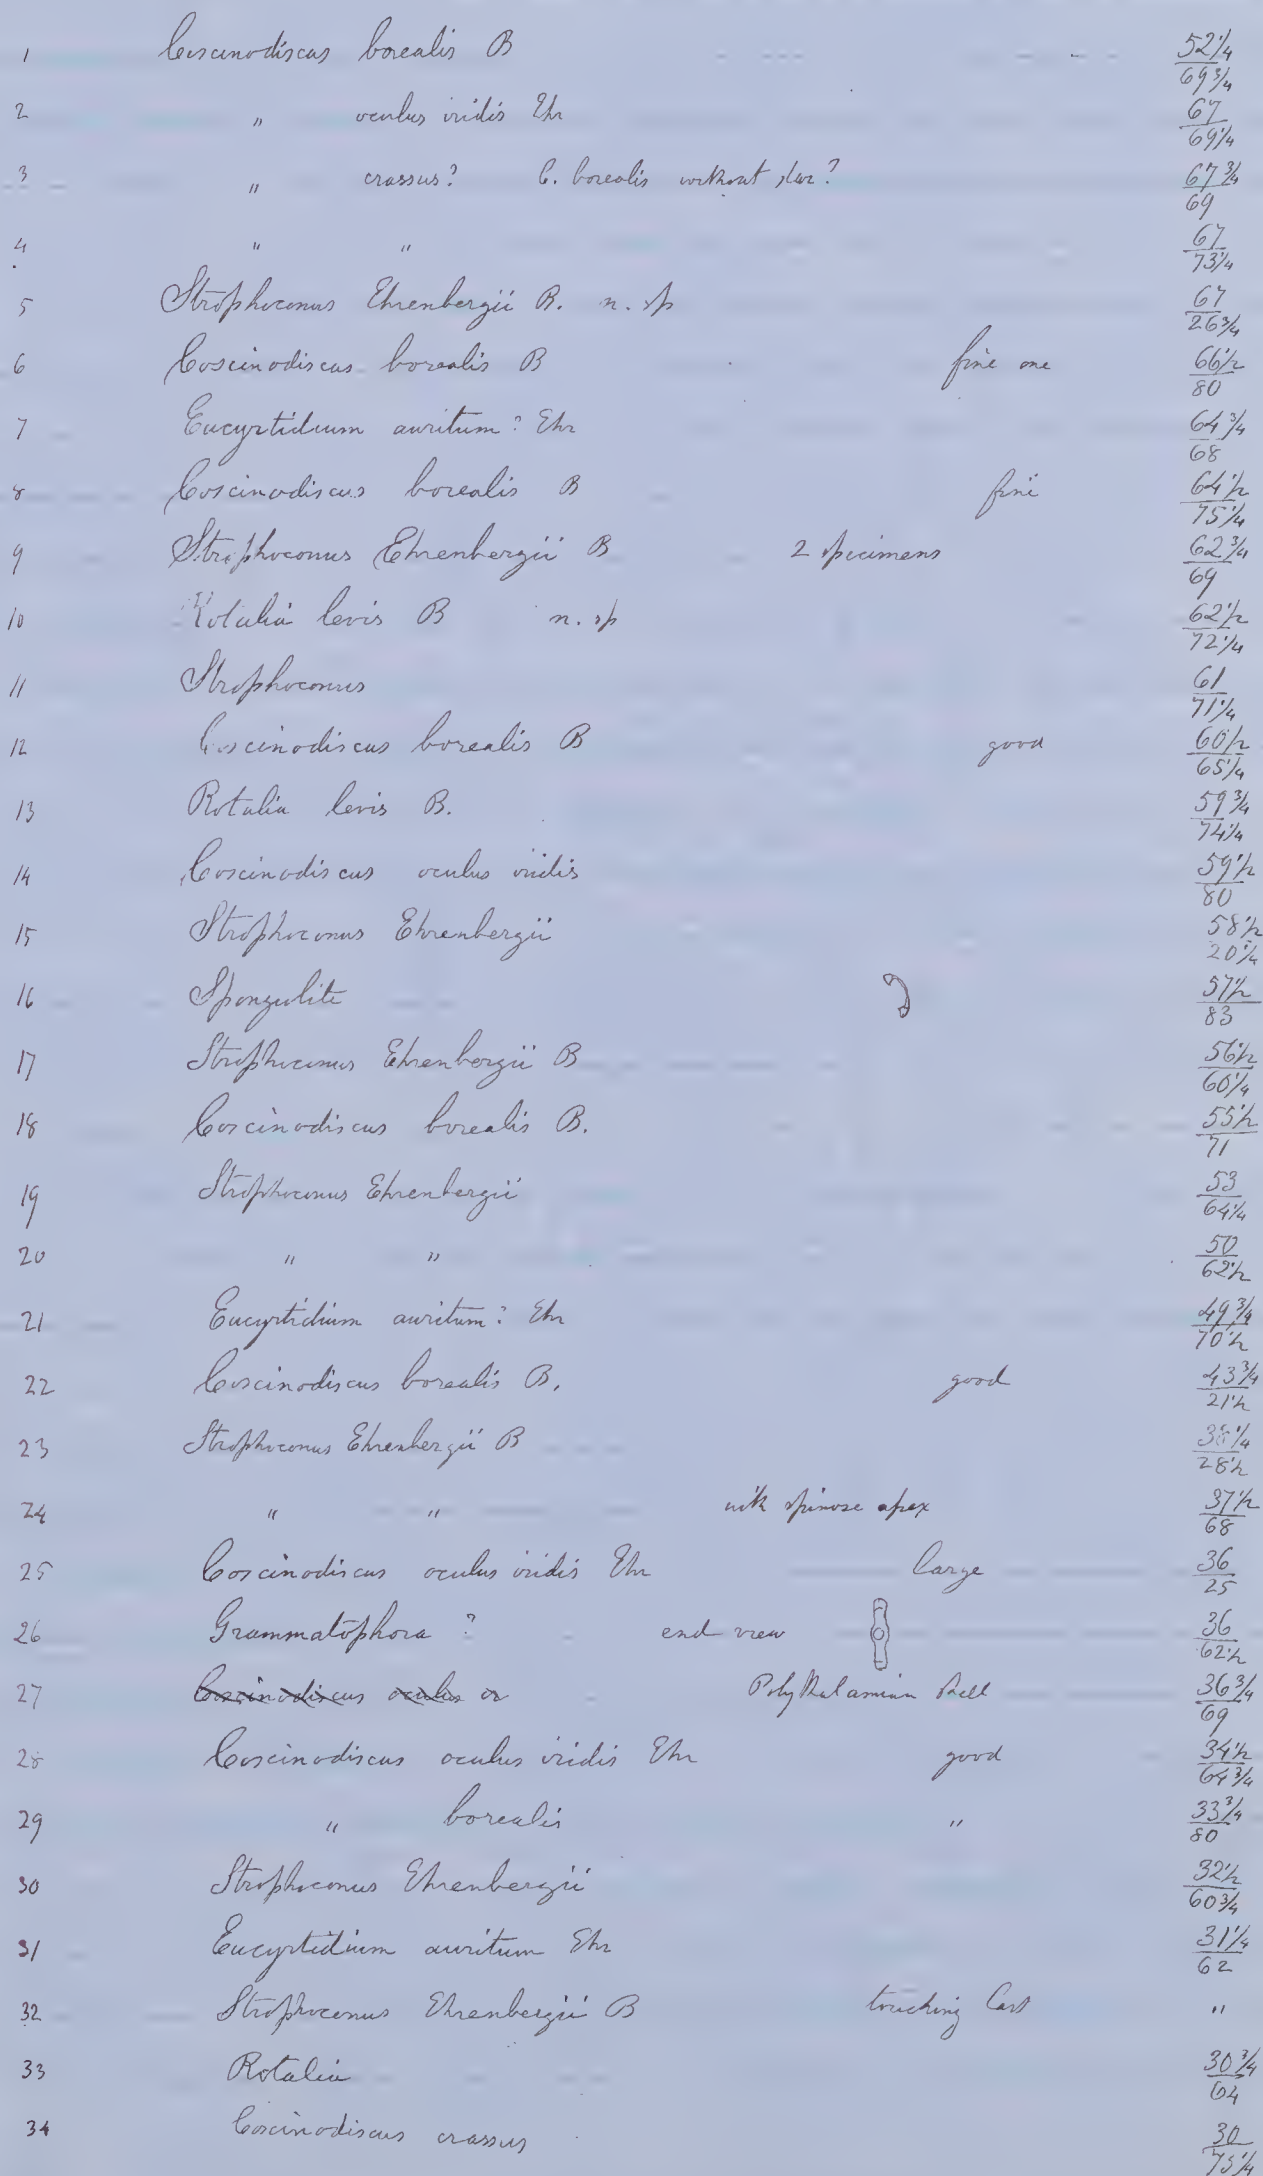 1 Coscinodiscus borealis B 52 1/4 / 69 3/4
2 " oculus iridis Ehr 67 / 69 1/4
3 " crassus? C. borealis without star? 67 3/4 / 69
4 " " 67 / 73 1/4
5 Strophoconus Ehrenbergii B. n. sp 67 / 26 3/4
6 Coscinodiscus borealis B fine one 66 1/2 / 80
7 Eucyrtidium auritum? Ehr 64 3/4 / 68
8 Coscinodiscus borealis B fine 64 1/2 / 75 1/4
9 Strophoconus Ehrenbergii B 2 specimens 62 3/4 / 69
10 Rotalia levis B n. sp 62 1/2 / 72 1/4
11 Strophoconus 61 / 71 1/4
12 Coscinodiscus borealis B good 60 1/2 / 65 1/4
13 Rotalia levis B. 59 3/4 / 74 1/4
14 Coscinodiscus oculus iridis 59 1/2 / 80
15 Strophoconus Ehrenbergii 58 1/2 / 20 1/4
16 Spongiolite 57 1/2 / 83
17 Strophoconus Ehrenbergii B 56 1/2 / 60 1/4
18 Coscinodiscus borealis B. 55 1/2 / 71
19 Strophoconus Ehrenbergii 53 / 64 1/4
20 " " 50 / 62 1/2
21 Eucyrtidium auritum? Ehr 49 3/4 / 70 1/2
22 Coscinodiscus borealis B. good 43 3/4 / 21 1/2
23 Strophoconus Ehrenbergii B 38 1/4 / 28 1/2
24 " " with spinose apex 37 1/2 / 68
25 Coscinodiscus oculus iridis Ehr large 36 / 25
26 Grammatophora? end view 36 / 62 1/2
27 Coscinodiscus oculus or Polythalamian shell 36 3/4 / 69
28 Coscinodiscus oculus iridis Ehr good 34 1/2 / 64 3/4
29 " borealis " 33 3/4 / 80
30 Strophoconus Ehrenbergii 32 1/2 / 60 3/4
31 Eucyrtidium auritum Ehr 31 1/4 / 62
32 Strophoconus Ehrenbergii B touching last "
33 Rotalia 30 3/4 / 64
34 Coscinodiscus crassus 30 / 75 1/4